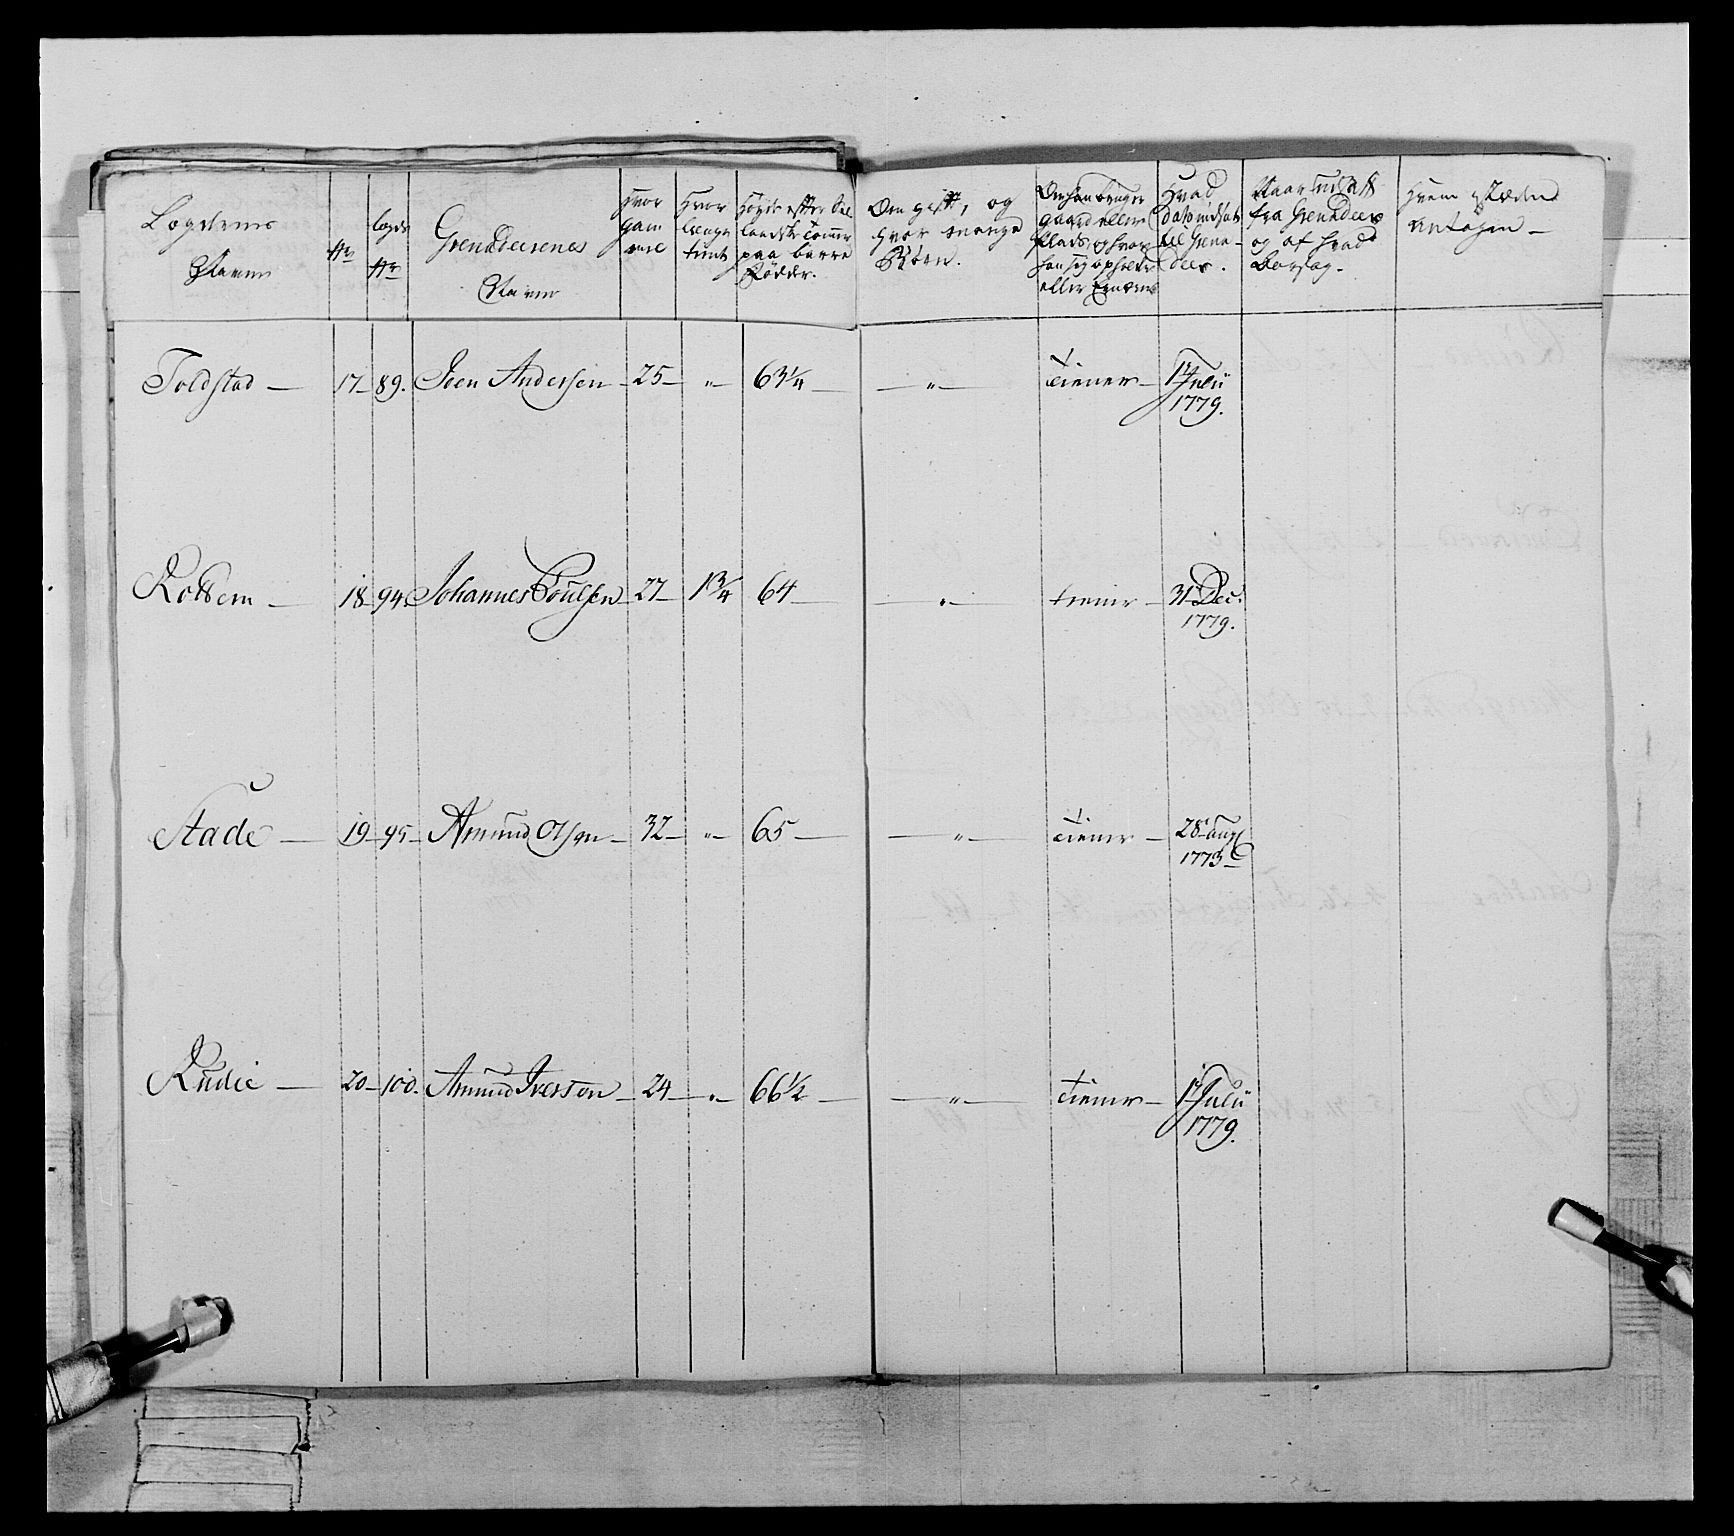 Legdernes
Navne
No
Legde
No
Grenaderernes
Navne
Hvor
gam
mel
Hvor
længe
tient
Høyde efter Sæl
landske Tommer
paa barre
Fødder.
Om gift, og
hvor mange
Børn.
Om han bruger
gaard eller
Plads, og hvor
han sig opholder
eller Ernærer
Hvad
dato indsat
til Grena-
deer.
Naar udsatt
fra Grenadeer
og af hvad
Aarsag.
Hvem i Stæden
antagen
Toldstad — 17 — 89. Joen Andersen — 25 — " 63¼ — " — tiener — 1te Julii
1779.
Rottem — 18 — 94. Johannes Poulsen — 27 — 1¾ 64 — " — tiener — 31 Dec:
1779.
Stade — 19 — 95 — Amund Olsen — 32 — " 65 — " — tiener — 28 Aug
1773
Rudie — 20 — 100. Amund Iversøn — 24 — " — 66½ — " — tiener — 1te Julii
1779.